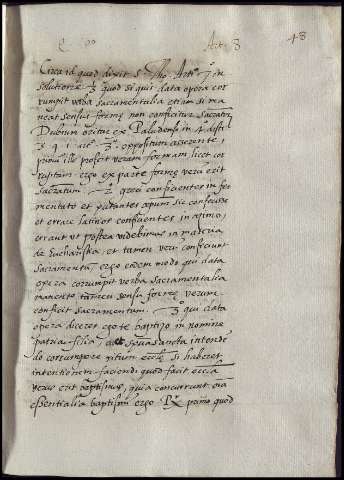 Art. 8 43
Circa id quod dixit S. Tho. Art. 7 in
solutione 3 quod si quis data opera cor
rumpit verba sacramentalia etiam si ma
neat sensus forme non conficitur sacratũ
Dubium oritur ex Paludensi in 4 disti
3 q 1 art. 3 oppositum asserente,
primo ille profert veram formam licet cor
ruptam ergo ex parte forme verũ erit
sacratum. 2º greci conficientes in fer
mentato et putantes apum sic confecisse
et errare latinos conficientes in azimo,
errant ut postea videbimus in materia
de Eucharistia, et tamen vere conficiunt
sacramentũ ergo eodem modo qui data
opera corrumpit verba sacramentalia
manente tamen sensu forme verum
conficit sacramentum. 3º qui data
opera diceret ego te baptizo in nomine
patria filia, et spuasancta intende
do corrumpere ritum eccle. si haberet
intentionem faciendi quod facit ecclia
verus erit baptismus, quia concurrunt oia
essentialia baptismi ergo. Rr primo quod